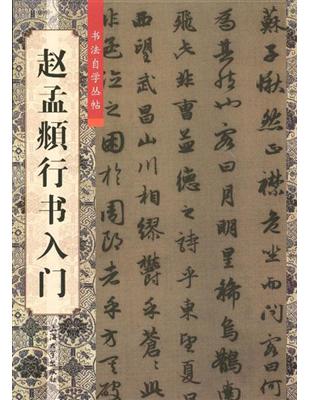 书法自学丛帖
赵孟頫行书入门
上海大学出版社
蘇子愀然正襟危坐而問客曰何
為其然也客曰月明星稀烏鵲南
飛此非曹孟德之詩乎東望夏口
西望武昌山川相繆鬱乎蒼蒼
此非孟德之困於周郎者乎方其破